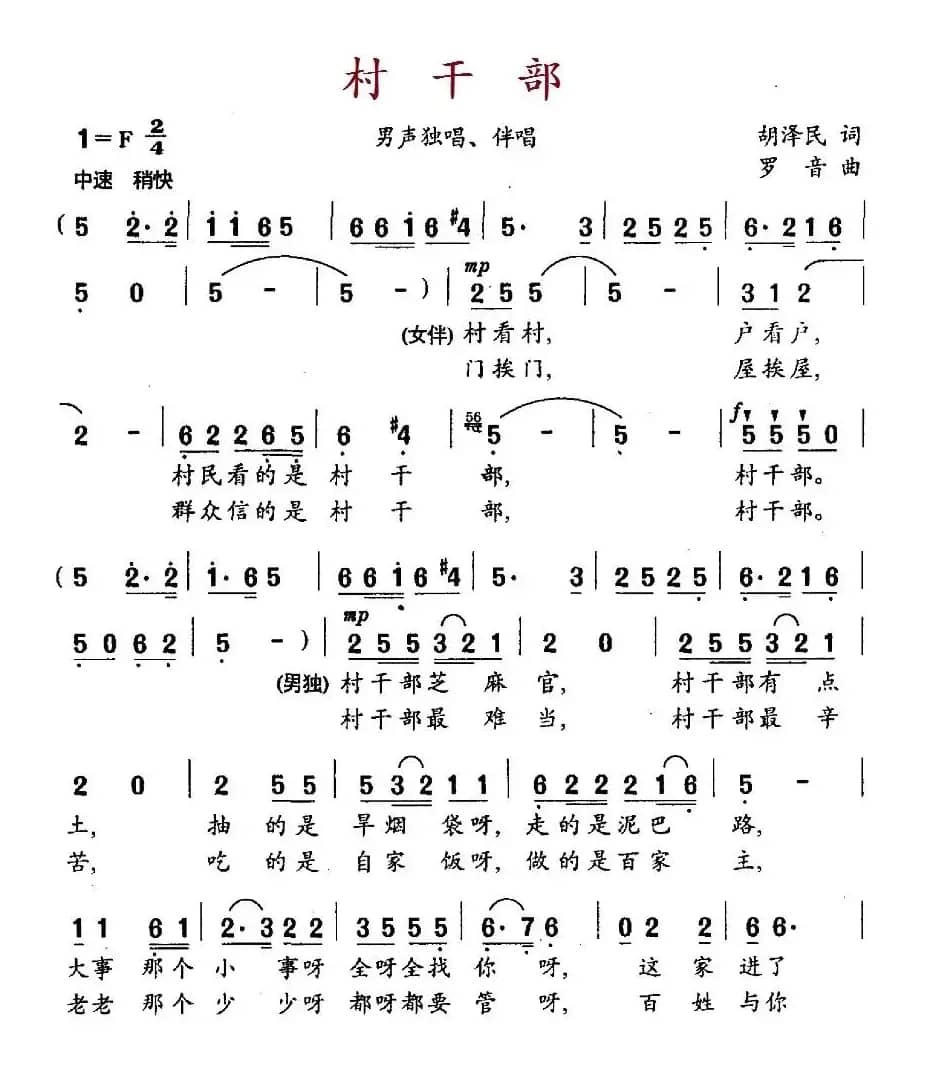 村干部
1=F 2/4
男声独唱、伴唱
胡泽民 词
中速 稍快
罗音 曲
( 5 2· 2 | 1 1 6 5 | 6 6 1 6 #4 | 5· 3 | 2 5 2 5 | 6· 2 1 6 |
5 0 | 5 - | 5 - ) | mp 2 5 5 | 5 - | 3 1 2 |
(女伴) 村看村, 户看户,
门挨门, 屋挨屋,
2 - | 6 2 2 6 5 | 6 #4 | 56 5 - | 5 - | f 5 5 5 0 |
村民看的是 村 干 部, 村干部。
群众信的是 村 干 部, 村干部。
( 5 2· 2 | 1· 6 5 | 6 6 1 6 #4 | 5· 3 | 2 5 2 5 | 6· 2 1 6 |
5 0 6 2 | 5 - ) | mp 2 5 5 3 2 1 | 2 0 | 2 5 5 3 2 1 |
(男独) 村干部芝 麻 官, 村干部有 点
村干部最 难 当, 村干部最 辛
2 0 | 2 5 5 | 5 3 2 1 1 | 6 2 2 2 1 6 | 5 - |
土, 抽 的是 旱烟 袋呀, 走的是泥巴 路,
苦, 吃 的是 自家 饭呀, 做的是百家 主,
1 1 6 1 | 2· 3 2 2 | 3 5 5 5 | 6· 7 6 | 0 2 2 | 6 6· |
大事 那个 小 事呀 全呀全找 你 呀, 这 家 进了
老老 那个 少 少呀 都呀都要 管 呀, 百 姓 与你